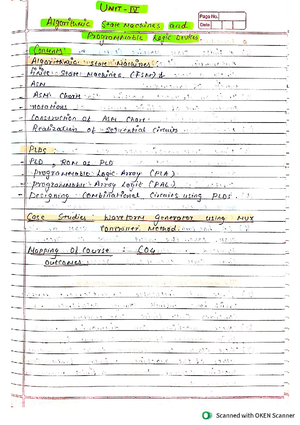 UNIT - IV
Page No.
Date
Algorithmic State Machines and
Programmable Logic Devices
Contents
Algorithmic State Machines:
- Finite State Machines (FSM)
- ASM
- ASM Chart
- notations
- Construction of ASM Chart
- Realization of Sequential Circuits
PLDs:
- PLD, ROM as PLD
- Programmable Logic Array (PLA)
- Programmable Array Logic (PAL)
- Designing Combinational Circuits using PLDs.
Case Studies: Waveform Generator using MUX
Controller Method.
Mapping Of Course: CO4
outcomes
Scanned with OKEN Scanner